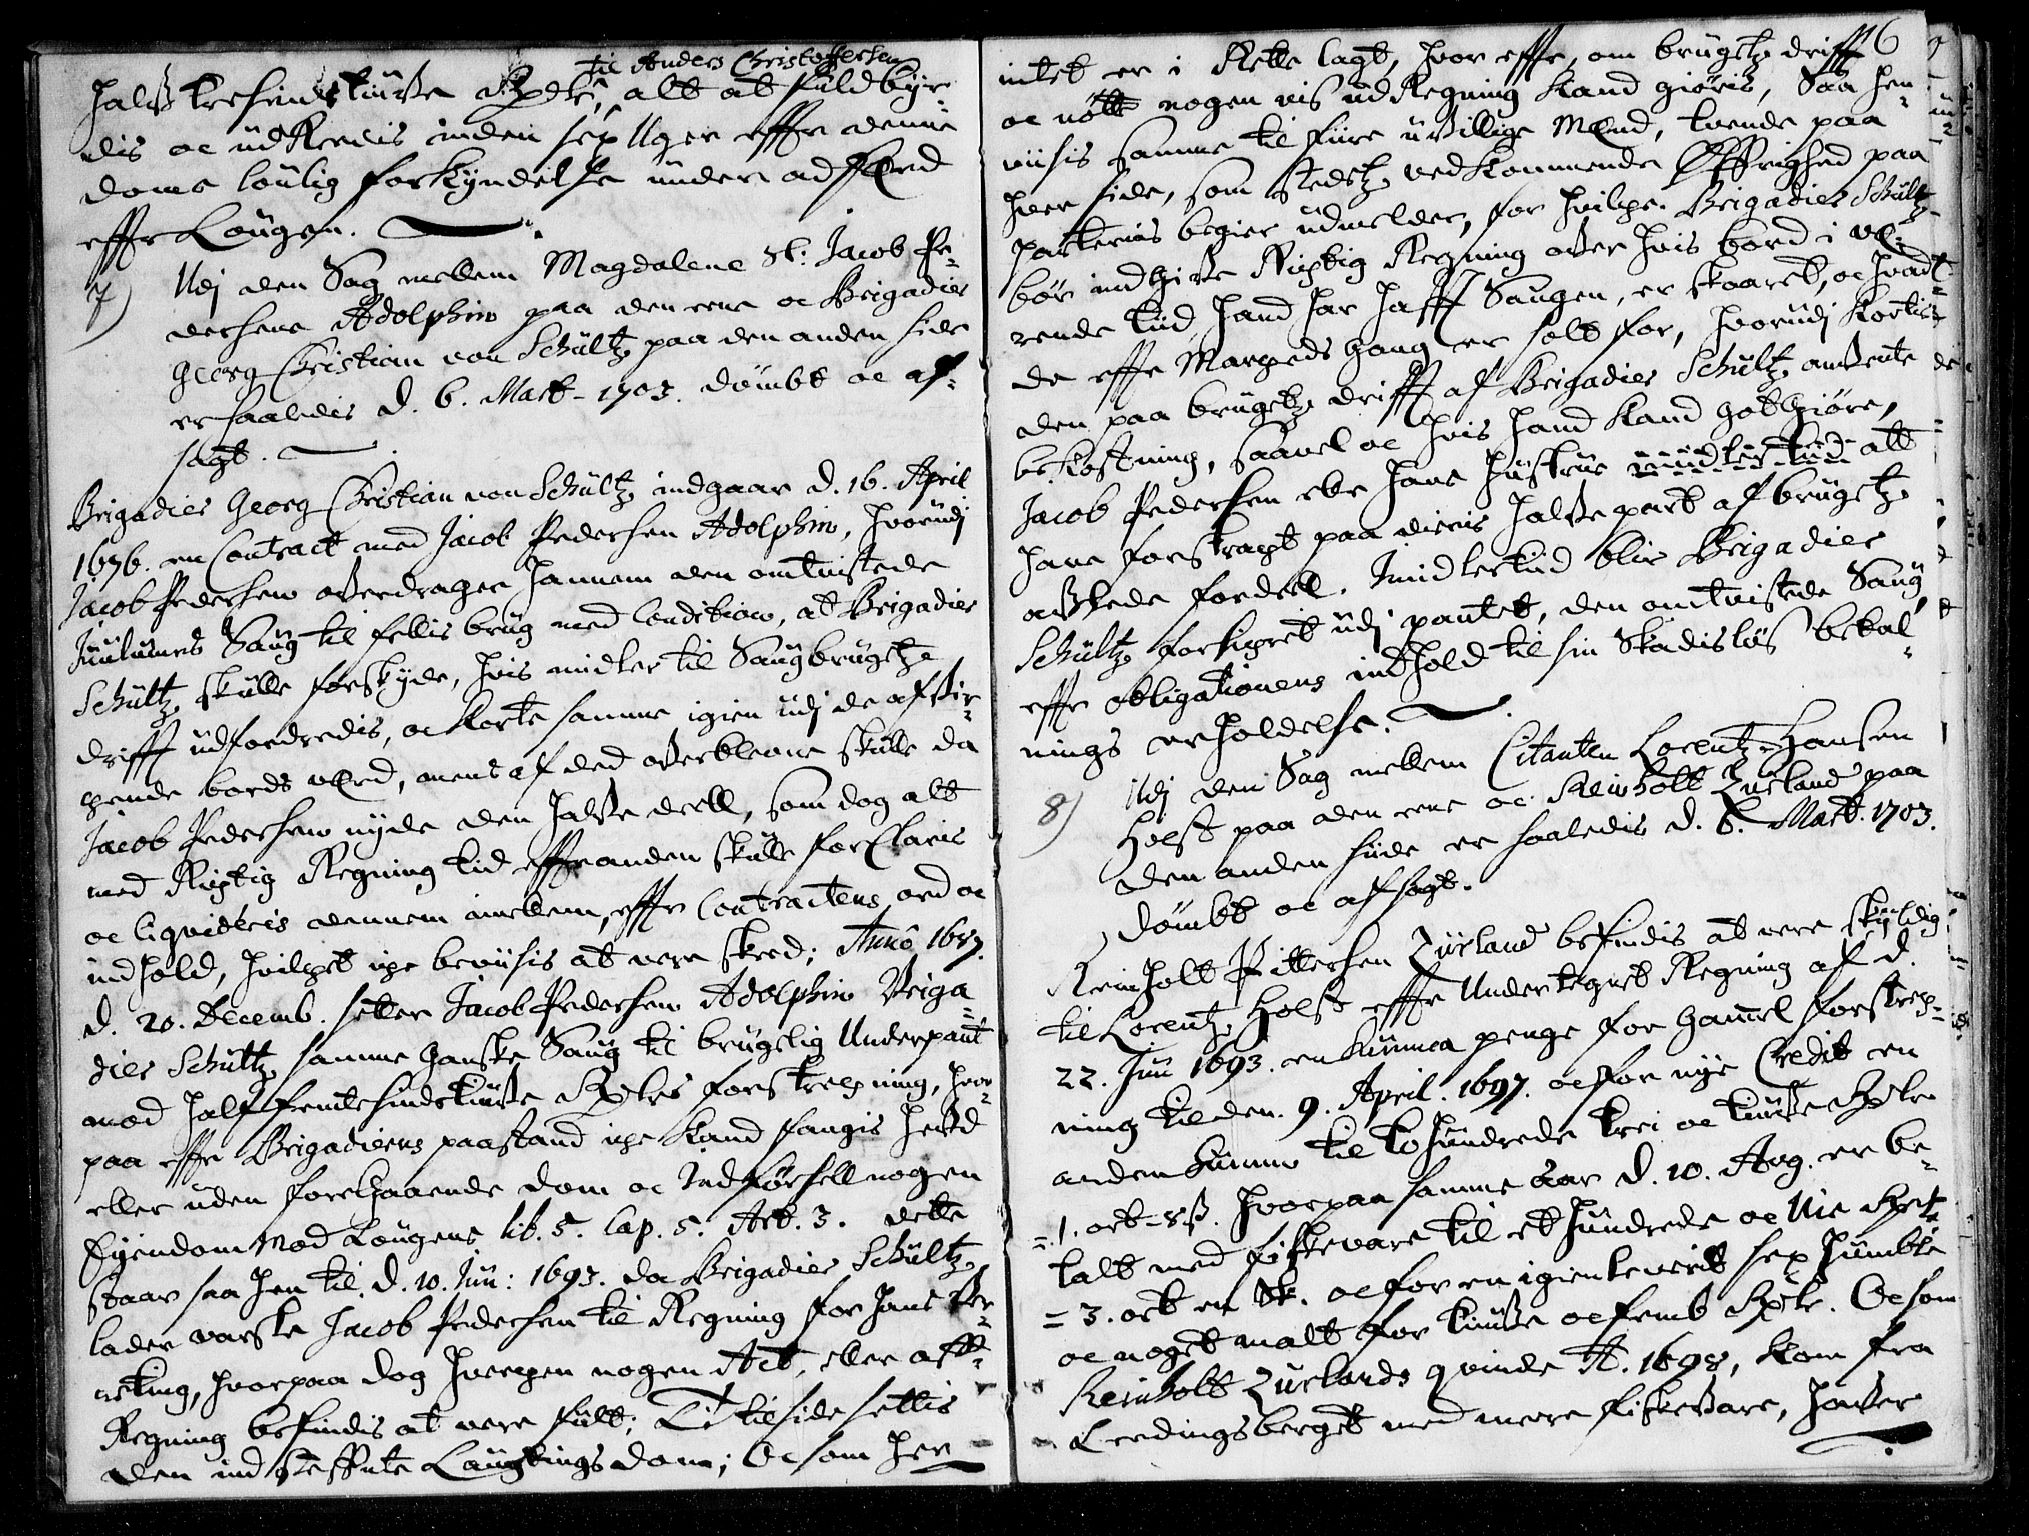 til Anders Christophersen
halfftresindstiuffve Rdr, alt at fuldbyr-
dis oc udRedis inden sex Uger effter denne
doms loulig forkyndelse under adferd
effter Lougen.
7) Udj den Sag mellem Magdalene Sl: Jacob Pe-
dersens Adolphin paa den eene oc Brigadier
Georg Christian von Schültz paa den anden side
er saaledis d. 6. Mart. 1703. dømbt oc aff-
sagt.
Brigadier Georg Christian von Schültz indgaar d. 16. April
1676. en Contract med Jacob Pedersen Adolphin, hvorudj
Jacob Pedersen offverdrager hannem den omtvistede
Saug til fellis brug med Condition, at Brigadier
Schültz skulle forskyde, hvis midler til Saugbrugetz
drifft udfordredis, oc korte samme igien udj de afski-
bende bords verd, mens af ded offverblevne skulle da
Jacob Pedersen nyde den halffve deell, som dog alt
med Rigtig Regning tid effter anden skulle forClaris
oc liqvideris dennem imellem, effter Contractens ord oc
indhold, hvilchet iche beviisis at vere skeed; Anno 1687.
d. 20. Decemb. setter Jacob Pedersen Adolphin Briga-
dier Schültz samme gandske Saug til brugelig Underpant
mod halffemtesindstiuffve Rdrs forstrechning, hvor-
paa effter Brigadierens paastand iche kand fangis hefd
eller uden foregaaende dom oc Indførsell nogen
Eyendom mod Lougens lib. 5. Cap. 5. Art. 3. dette
staar saa hen til d. 10. Juni: 1693. da Brigadier Schültz
lader varsle Jacob Pedersen til Regning for hans
retting, hvorpaa dog hverchen nogen Act, eller
Regning befindis at vere fult; Ti tilside settis
den indsteffnte Laugtings dom; Oc som her
116
intet er i Rette lagt, hvor effter, om brugetz drifft
oc nogen vis udRegning kand giøris, Saa hen-
viisis samme til fiire uvillige Mænd, tvende paa
hver side, som stedetz vedkommende Øffrighed paa
parternis begier udmelder, for hvilche Brigadier Schültz
bør indgiffve Rigtig Regning offver hvis bord i
rende tiid hand har hafft Saugen, er skaaret, oc hvad
de effter Marcheds gang er solt for, hvorudj kortis
den paa brugetz drifft af Brigadier Schültz anvente
bekostning, saavel oc hvis hand kand godtgiøre,
Jacob Pedersen eller hans hustrue imidlertiid alt
have forstragt paa dieris halffve part af brugetz
afflede fordeel. Imidlertiid blir Brigadier
Schültz forsichret udj pantet, den omtvistede Saug
effter obligationens indhold til sin Skadisløs betal-
nings erholdelse.
8) Udj den Sag mellem Citanten Lorentz Hansen
Holst paa den eene oc Reinholt Zürland paa
den anden siide er saaledis d. 6. Mart. 1703.
dømbt oc afsagt.
Reinholt Pittersen Zürland befindis at vere skyldig
til Lorentz Holst effter Undertegnet Regning af d.
22. Juni 1693. en Summa penge for gammel forstrech-
ning til den 9. April. 1697. oc for nye Credit en
anden Summa til tohundrede trei oc tiuffve Rdr
1. ort - 8 ß. hvorpaa samme aar d. 10. Aug. er be-
talt med fiskevare til et hundrede oc Nie Rdr
3. ort en Sk. oc for en igien leverit sex
oc noget malt for tiuffve oc femb Rdr. Oc som
Reinholt Zürlands qvinde A. 1698, kom fra
Lerdingsberget med mere fiskevare, haffver